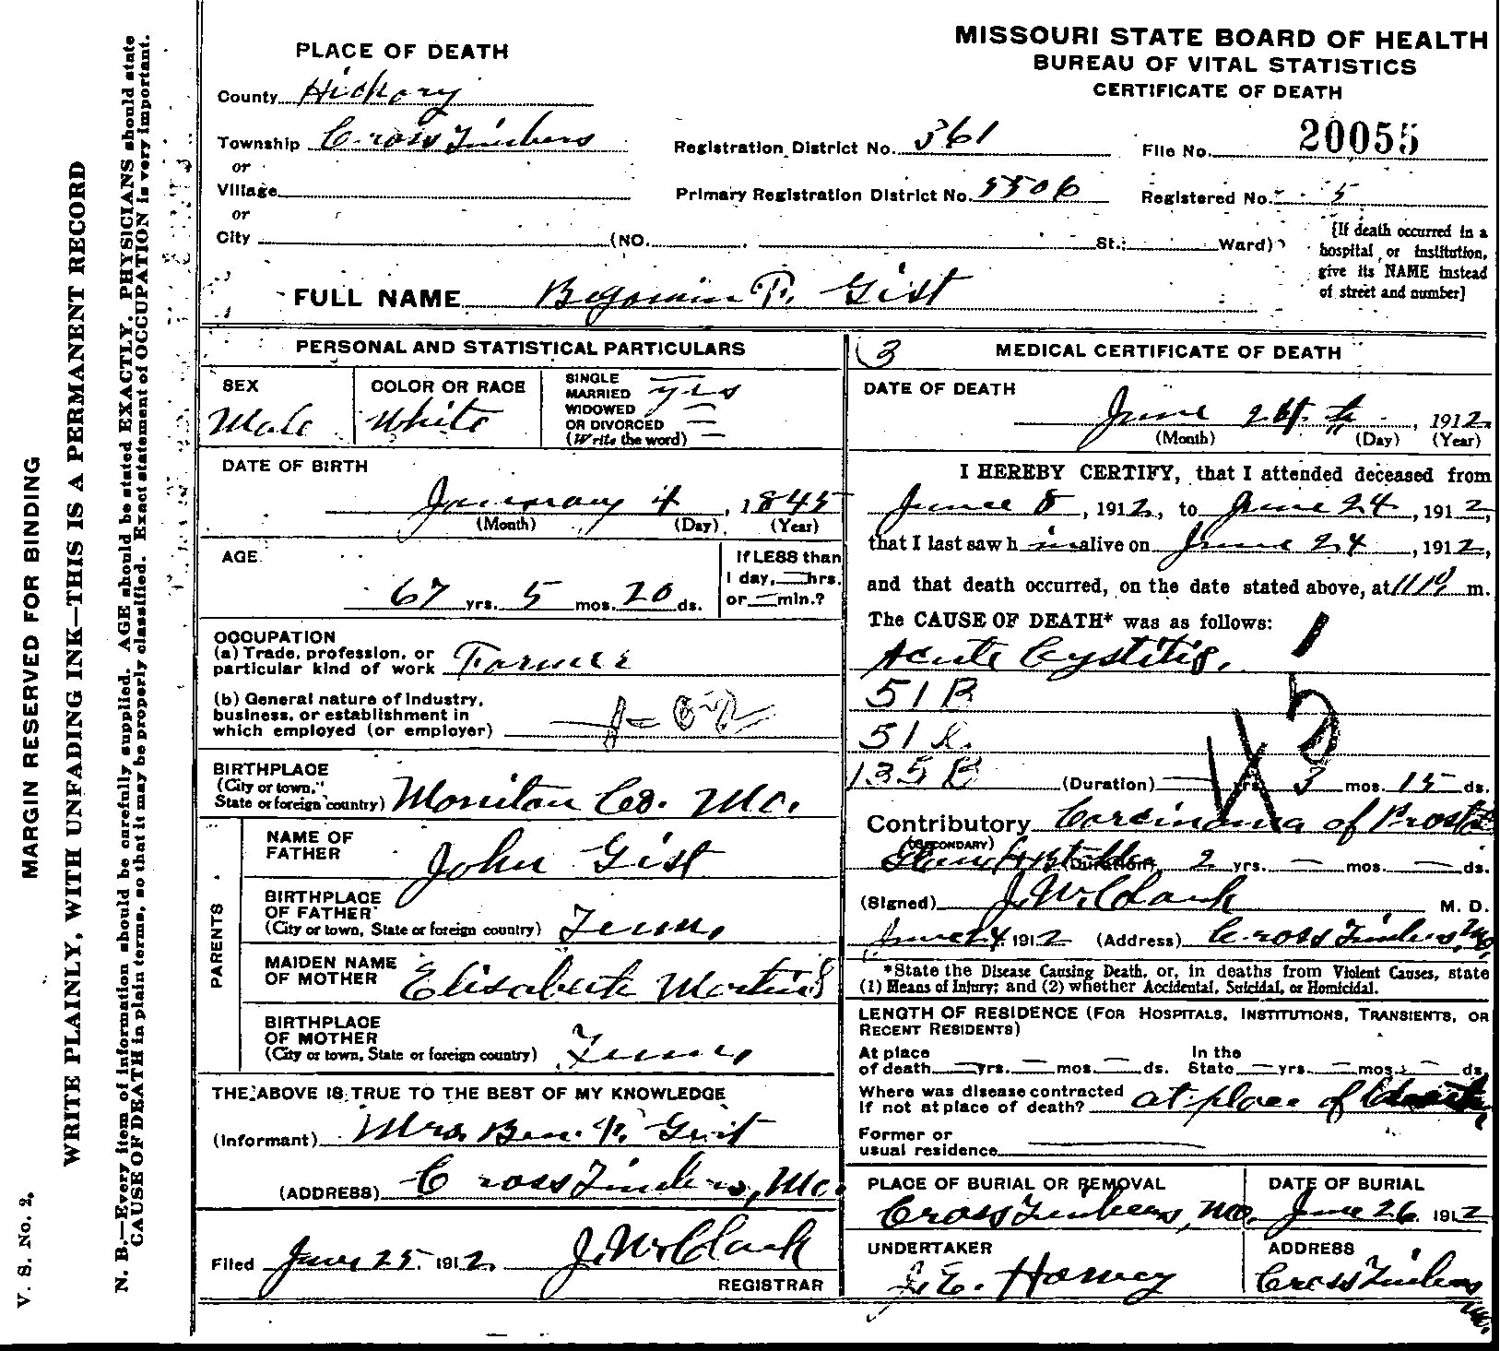 MISSOURI STATE BOARD OF HEALTH
BUREAU OF VITAL STATISTICS
CERTIFICATE OF DEATH
PLACE OF DEATH
County Hickory
Township Cross Timbers
or
Village
or
City (NO. St.; Ward)
Registration District No. 361
File No. 20055
Primary Registration District No. 5506
Registered No. 5
[If death occurred in a
hospital or institution,
give its NAME instead
of street and number]
FULL NAME Benjamin P. Gist
PERSONAL AND STATISTICAL PARTICULARS
SEX
Male
COLOR OR RACE
White
SINGLE
MARRIED yes
WIDOWED
OR DIVORCED
(Write the word)
DATE OF BIRTH
January 4, 1845
(Month) (Day) (Year)
AGE
67 yrs. 5 mos. 20 ds.
If LESS than
1 day, — hrs.
or — min.?
OCCUPATION
(a) Trade, profession, or
particular kind of work Farmer
(b) General nature of industry,
business, or establishment in
which employed (or employer)
BIRTHPLACE
(City or town,
State or foreign country) Monitau Co. Mo.
PARENTS
NAME OF
FATHER John Gist
BIRTHPLACE
OF FATHER
(City or town, State or foreign country) Tenn.
MAIDEN NAME
OF MOTHER Elisabeth Martin
BIRTHPLACE
OF MOTHER
(City or town, State or foreign country) Tenn.
THE ABOVE IS TRUE TO THE BEST OF MY KNOWLEDGE
(Informant) Mrs. Ben. P. Gist
(ADDRESS) Cross Timbers, Mo.
Filed June 25, 1912. J. W. Clark
REGISTRAR
3 MEDICAL CERTIFICATE OF DEATH
DATE OF DEATH
June 24th, 1912
(Month) (Day) (Year)
I HEREBY CERTIFY, that I attended deceased from
June 8, 1912, to June 24, 1912,
that I last saw h im alive on June 24, 1912,
and that death occurred, on the date stated above, at m.
The CAUSE OF DEATH* was as follows:
Acute Cystitis.
51 B
51
135 B
(Duration) yrs. 3 mos. 15 ds.
Contributory Carcinoma of Prostate
(SECONDARY)
Gland (Duration) 2 yrs. — mos. — ds.
(Signed) J. W. Clark M. D.
June 24, 1912 (Address) Cross Timbers, Mo.
*State the Disease Causing Death, or, in deaths from Violent Causes, state
(1) Means of Injury; and (2) whether Accidental, Suicidal, or Homicidal.
LENGTH OF RESIDENCE (FOR HOSPITALS, INSTITUTIONS, TRANSIENTS, OR
RECENT RESIDENTS)
At place
of death — yrs. — mos. — ds.
In the
State — yrs. — mos. — ds.
Where was disease contracted
if not at place of death? at place of death
Former or
usual residence
PLACE OF BURIAL OR REMOVAL
Cross Timbers, Mo.
DATE OF BURIAL
June 26, 1912
UNDERTAKER
J. E. Harvey
ADDRESS
Cross Timbers
Mo.
MARGIN RESERVED FOR BINDING
WRITE PLAINLY, WITH UNFADING INK—THIS IS A PERMANENT RECORD
N. B.—Every item of information should be carefully supplied. AGE should be stated EXACTLY. PHYSICIANS should state
CAUSE OF DEATH in plain terms, so that it may be properly classified. Exact statement of OCCUPATION is very important.
V. S. No. 2.